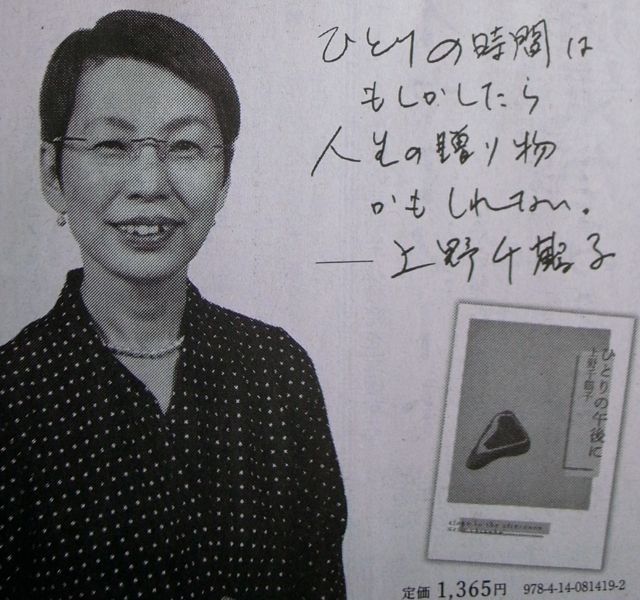 ひとりの時間は
もしかしたら
人生の贈り物
かもしれない。
──上野千鶴子
ひとりの午後に
上野千鶴子
alone in the afternoon
定価 1,365円 978-4-14-081419-2